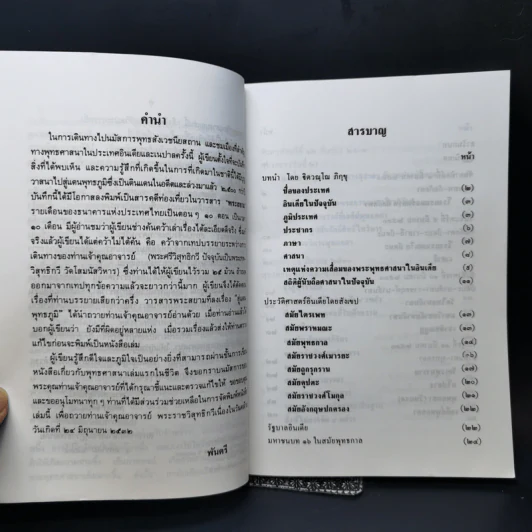 คำนำ
ในการเดินทางไปนมัสการพุทธสังเวชนียสถาน และชมเมืองที่สำคัญ
ทางพุทธศาสนาในประเทศอินเดียและเนปาลครั้งนี้ ผู้เขียนตั้งใจที่จะบันทึก
สิ่งที่ได้พบเห็น และความรู้สึกที่เกิดขึ้นในการที่เกิดมาในชาตินี้ได้มี
วาสนาไปสู่แดนพุทธภูมิซึ่งเป็นดินแดนในอดีตและล่วงมาแล้ว ๒๕๓๐ กว่าปี
บันทึกนี้ได้มีโอกาสลงพิมพ์เป็นสารคดีท่องเที่ยวในวารสาร "พระสยาม"
รายเดือนของธนาคารแห่งประเทศไทยเป็นตอน ๆ ๑๐ ตอน เป็นเวลา
๑๐ เดือน มีผู้อ่านชมว่าผู้เขียนช่างค้นคว้าเล่าเรื่องได้ละเอียดดีจริง ซึ่ง
จริงแล้วผู้เขียนได้แต่คว้าไม่ได้ค้น คือ คว้าจากเทปบรรยายระหว่างการ
เดินทางของท่านเจ้าคุณอาจารย์ (พระศรีวิสุทธิกวี ปัจจุบันเป็นพระราช
วิสุทธิกวี วัดโสมนัสวิหาร) ซึ่งท่านได้ให้ผู้เขียนไว้รวม ๒๕ ม้วน ถ้า
ออกมาจากเทปทุกข้อความแล้วจะยาวกว่านี้มาก ผู้เขียนจึงได้ตัด
เรื่องที่ท่านบรรยายเสียกว่าครึ่ง วารสารพระสยามที่ลงเรื่อง "สู่แดน
พุทธภูมิ" ได้นำถวายท่านเจ้าคุณอาจารย์อ่านด้วย เมื่อท่านอ่านแล้ว
บอกผู้เขียนว่า ยังมีที่ผิดอยู่หลายแห่ง เมื่อรวมเรื่องแล้วส่งให้ท่าน
แก้ไขก่อนจะพิมพ์เป็นหนังสือเล่ม
ผู้เขียนรู้สึกดีใจและภูมิใจเป็นอย่างยิ่งที่สามารถผ่านขั้นการเขียน
หนังสือเกี่ยวกับพุทธศาสนาเล่มแรกในชีวิต จึงขอกราบนมัสการ
พระคุณท่านเจ้าคุณอาจารย์ที่ได้กรุณาชี้แนะและตรวจแก้ไขให้
และขออนุโมทนาทุก ๆ ท่านที่ได้มีส่วนร่วมช่วยเหลือในการจัดพิมพ์หนังสือ
เล่มนี้ เพื่อถวายท่านเจ้าคุณอาจารย์ พระราชวิสุทธิกวีเนื่องใน
วันเกิดที่ ๒๔ มิถุนายน ๒๕๓๒
พันตรี
สารบาญ
หน้า
บทนำ โดย ฐิตวณฺโณ ภิกฺขุ
ชื่อของประเทศ (๒)
อินเดียในปัจจุบัน (๒)
ภูมิประเทศ (๓)
ประชากร (๓)
ภาษา (๔)
ศาสนา (๕)
เหตุแห่งความเสื่อมของพระพุทธศาสนาในอินเดีย (๗)
สถิติผู้นับถือศาสนาในปัจจุบัน (๑๑)
ประวัติศาสตร์อินเดียโดยสังเขป (๑๓)
สมัยไตรเพท (๑๓)
สมัยพราหมณะ (๑๓)
สมัยพุทธกาล (๑๔)
สมัยราชวงศ์เมารยะ (๑๖)
สมัยถูกรุกราน (๑๗)
สมัยคุปตะ (๑๘)
สมัยราชวงศ์โมกุล (๑๙)
สมัยอังกฤษปกครอง (๒๒)
รัฐบาลอินเดีย (๒๒)
มหาชนบท ๑๖ ในสมัยพุทธกาล (๒๔)